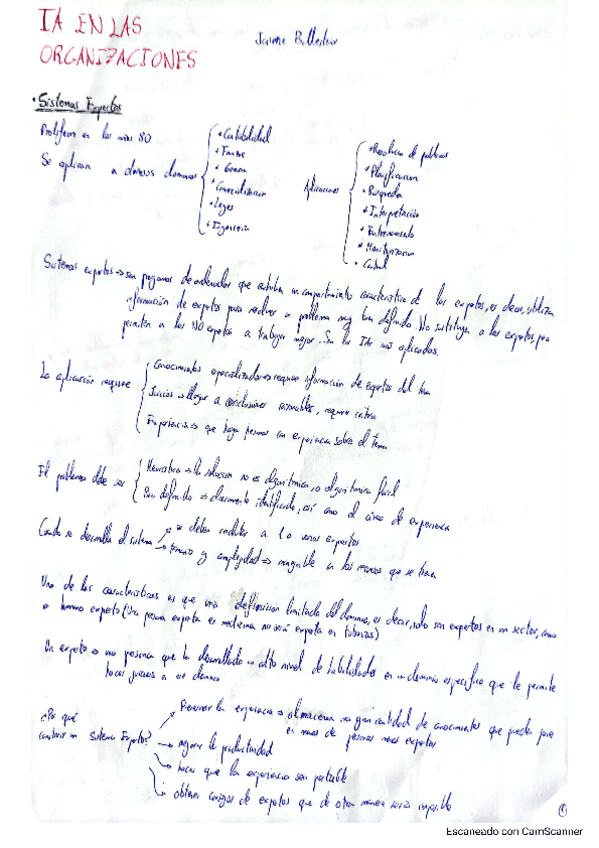 IA EN LAS
ORGANIZACIONES
Jaume
• Sistemas Expertos
Proliferan en los años 80
Se aplican a diversos dominios
• Contabilidad
• Comercialización
• Leyes
• Ingeniería
Aplicaciones
• Resolución de problemas
• Planificación
• Búsqueda
• Interpretación
• Entrenamiento
• Monitorización
• Control
Sistemas expertos → son programas de ordenador que exhiben un comportamiento característico de los expertos, es decir, utiliza
información de expertos para resolver un problema muy bien definido. No sustituyen a los expertos, pero
permiten a los NO expertos a trabajar mejor. Son las IAs más aplicadas.
La aplicación requiere
Conocimientos especializados → requiere información de expertos del tema
Juicios → llegar a conclusiones razonables, requiere criterio
Experiencia → que haya personas con experiencia sobre el tema
El problema debe ser
Heurístico → la solución no es algorítmica, o algorítmica fácil
Bien definido → claramente identificado, así como el área de experiencia
Cuando se desarrolla el sistema
→ se deben recurrir a 1 o varios expertos
→ tamaño y complejidad → manejable a los medios que se tienen
Una de las características es que una definición limitada del dominio, es decir, solo son expertos en un sector, como
un humano experto (Una persona experta en medicina no será experta en tuberías)
Un experto → una persona que ha desarrollado un alto nivel de habilidades en un dominio específico que le permite
hacer juicios a ese dominio
¿Por qué
construir un Sistema Experto?
→ Preservar la experiencia → almacenan una gran cantidad de conocimientos que puedes poner
en manos de personas menos expertas
→ mejorar la productividad
→ hacer que la experiencia sea portable
→ obtener consejos de expertos que de otra manera sería imposible
1
Escaneado con CamScanner